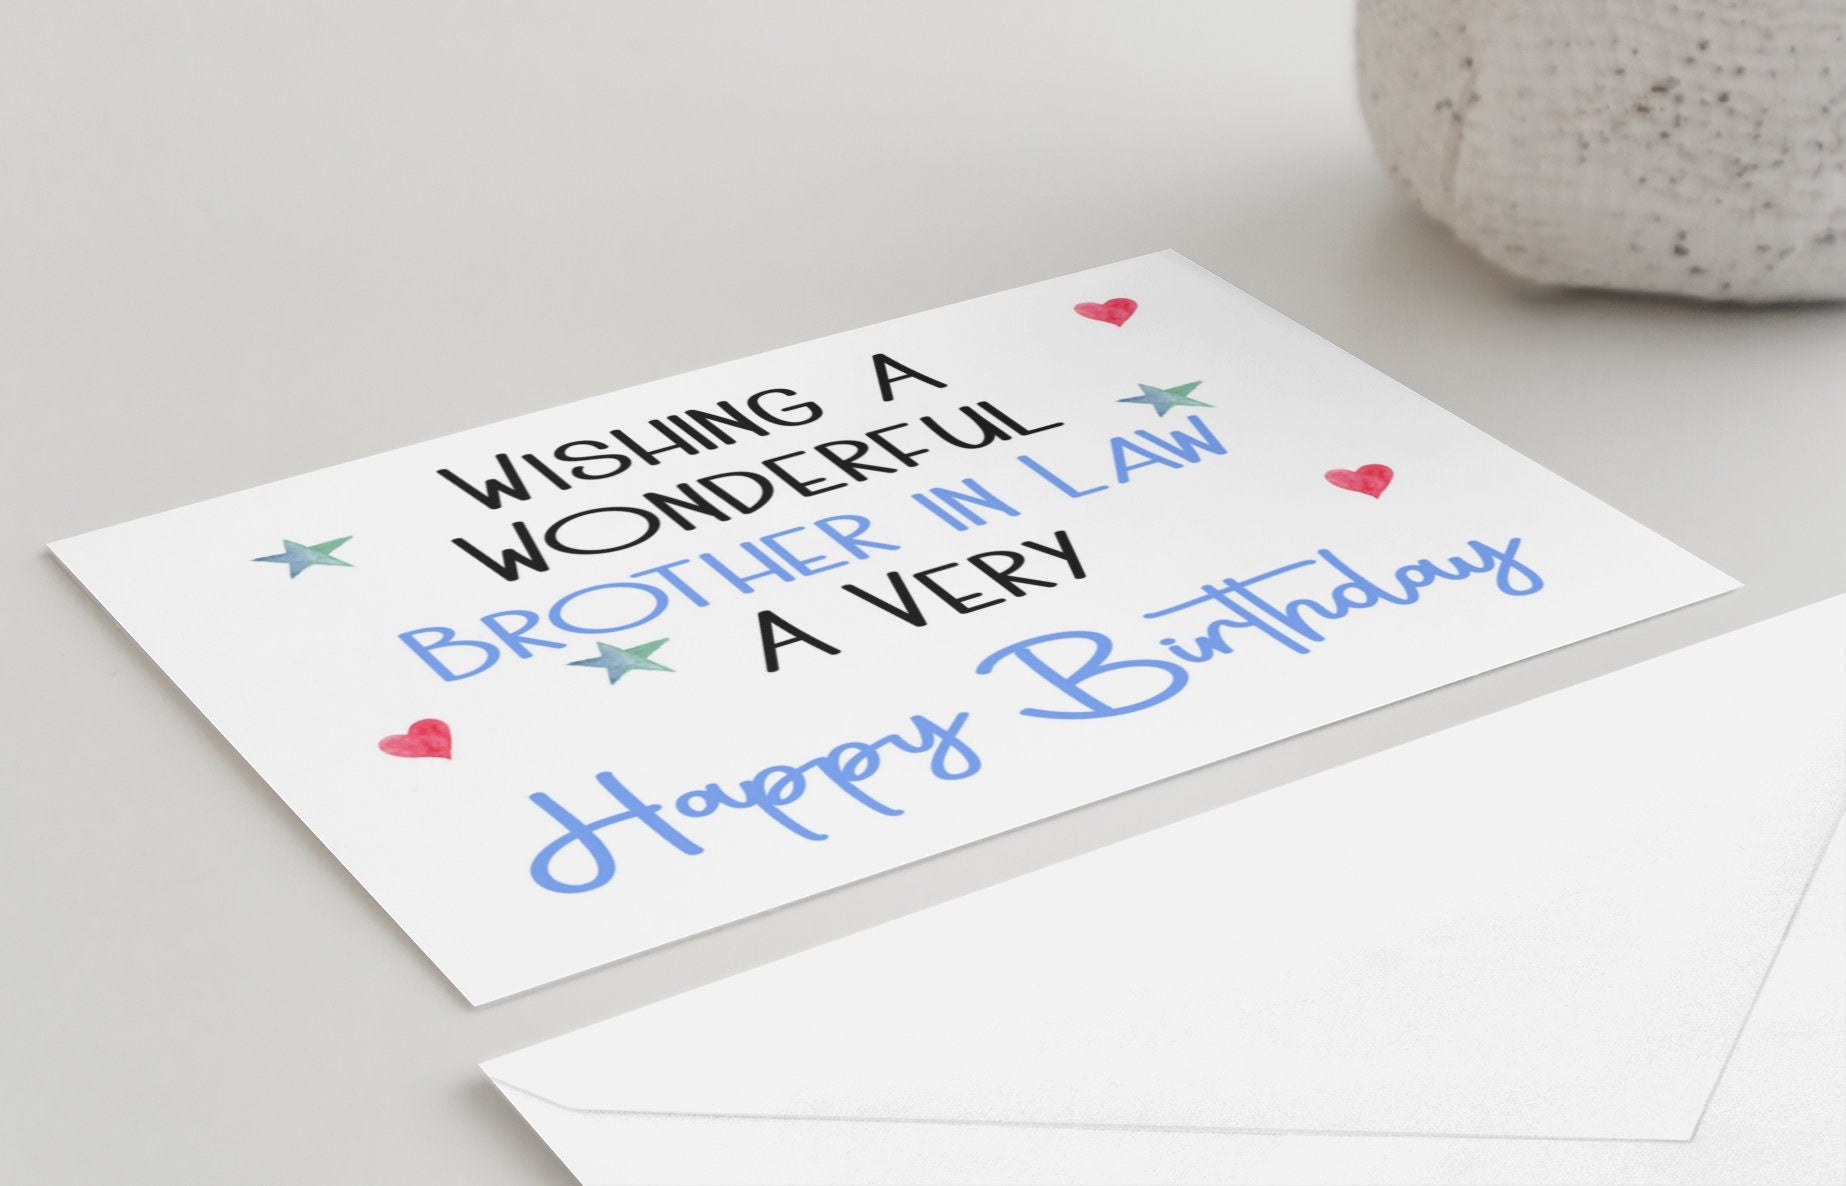 WISHING A
WONDERFUL
BROTHER IN LAW
A VERY
Happy Birthday